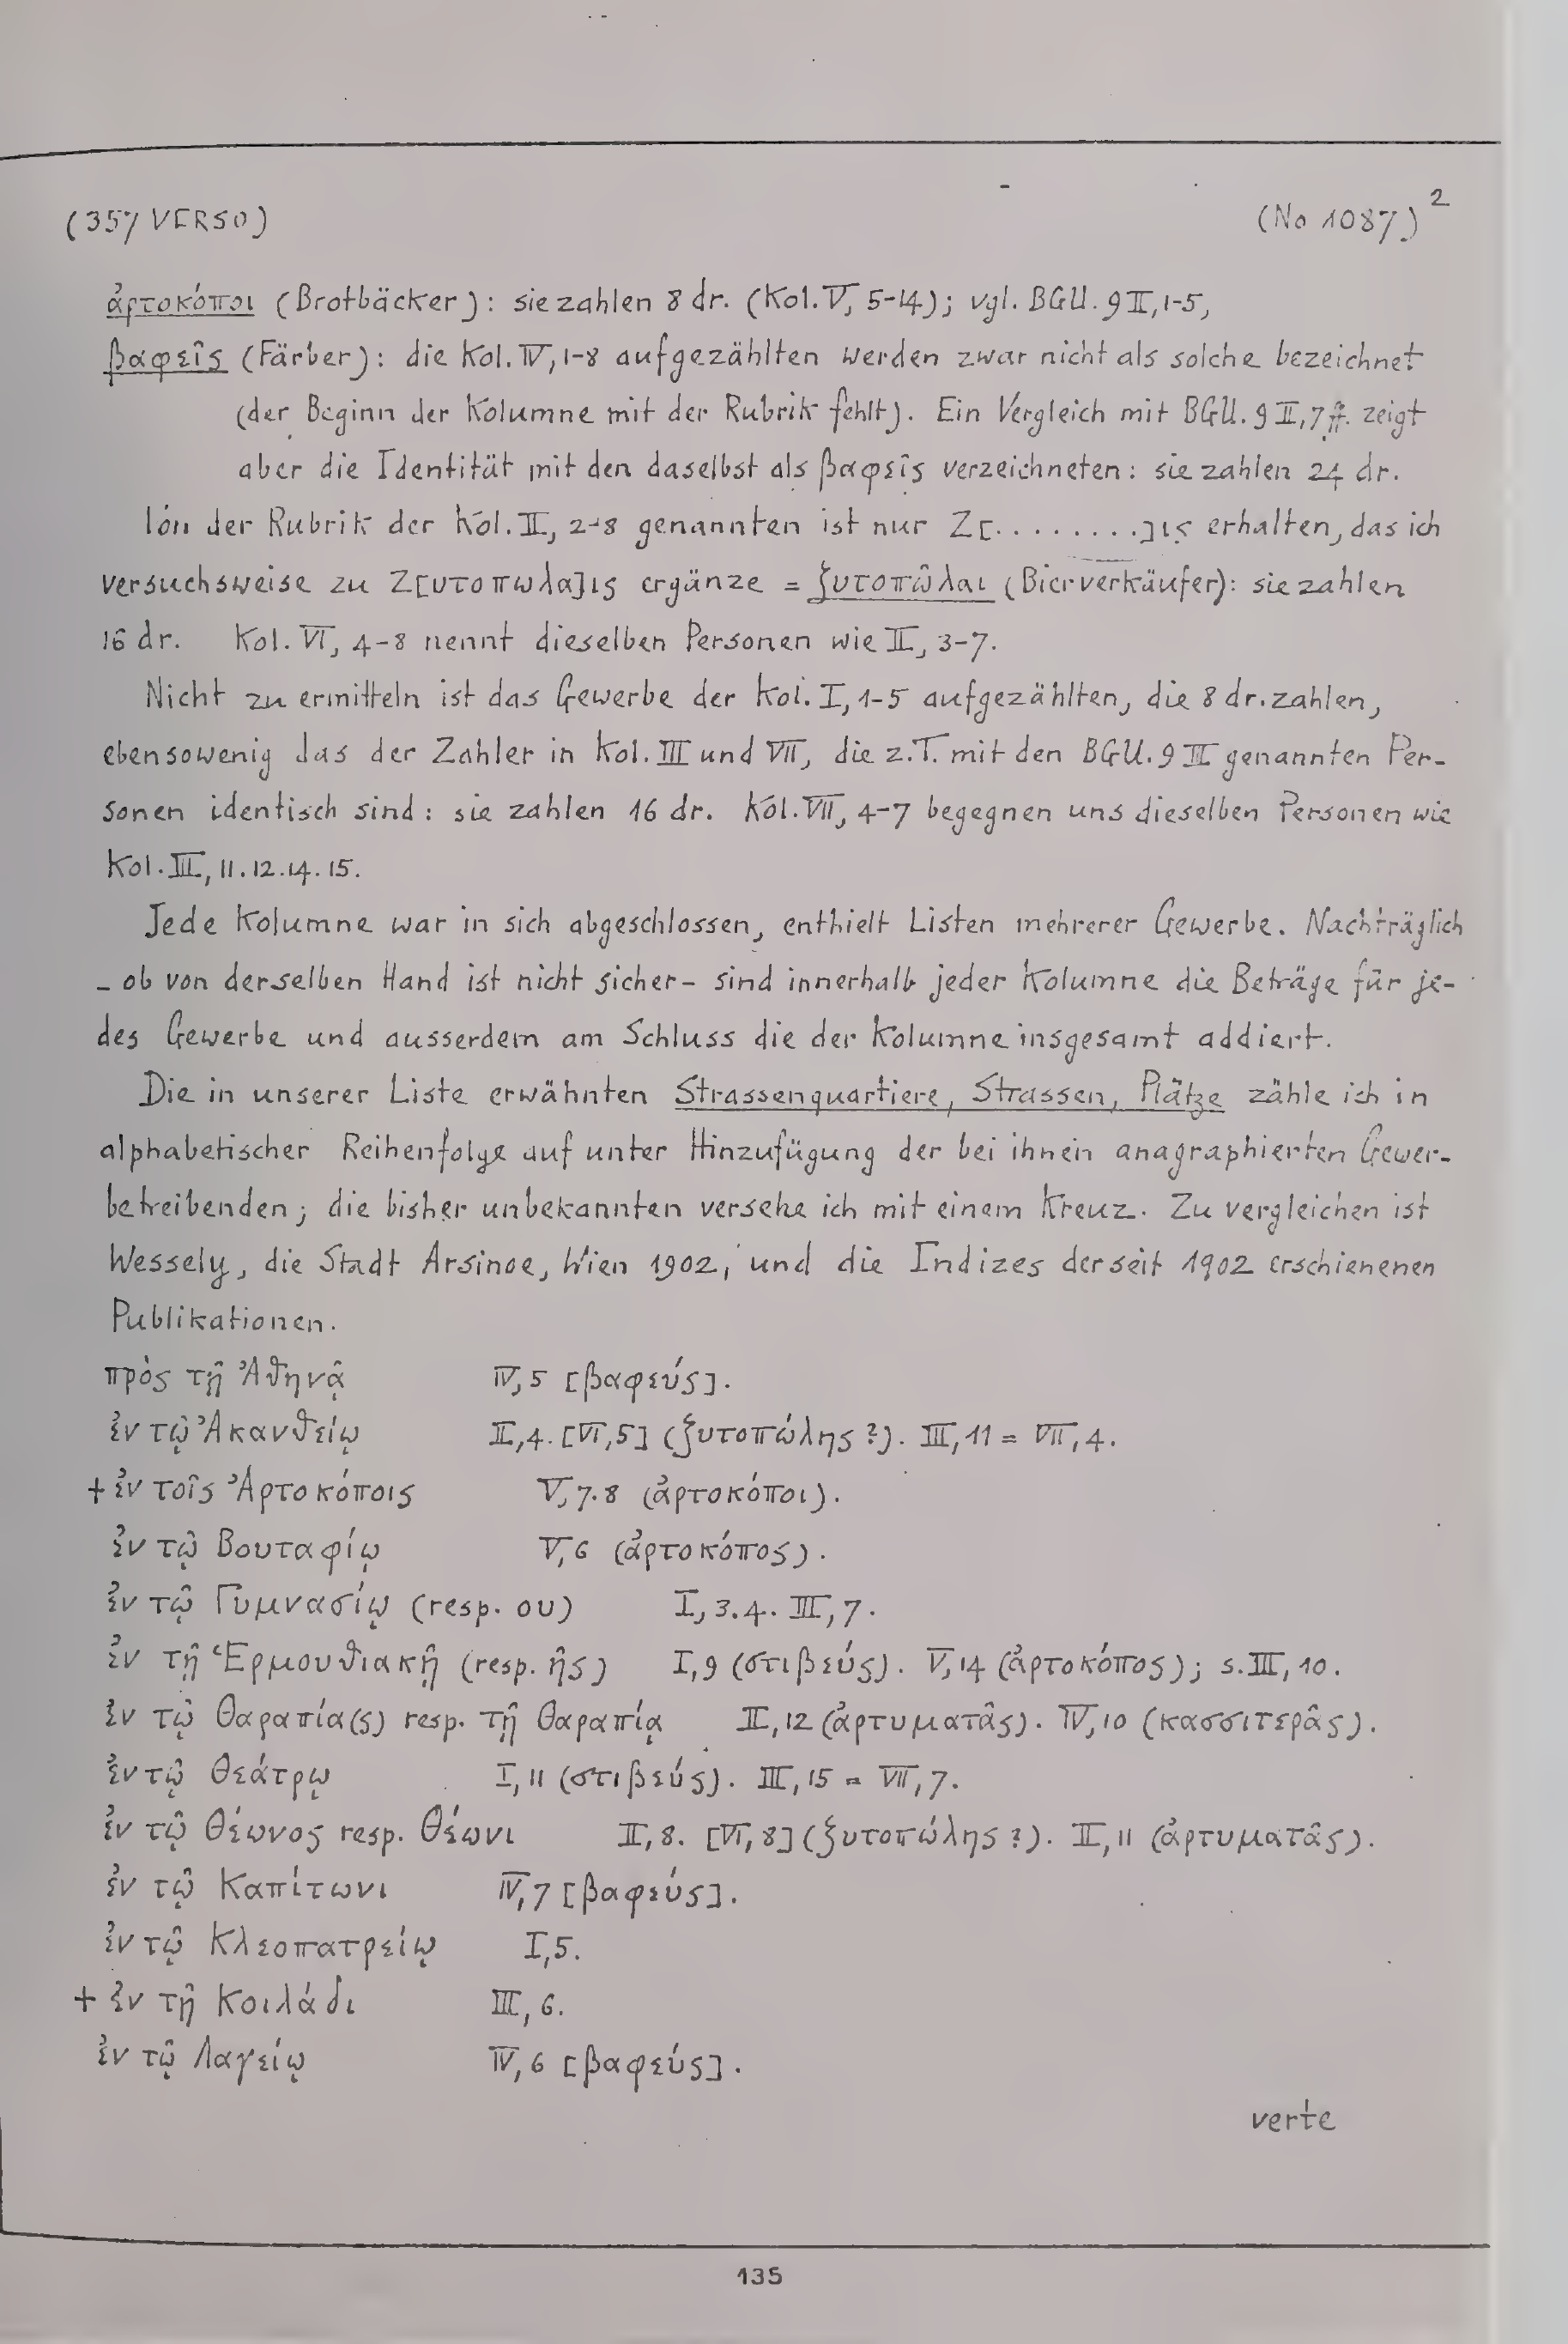 (357 VERSO) (No 1087)²
ἀρτοκόποι (Brotbäcker): sie zahlen 8 dr. (Kol. V, 5-14); vgl. BGU. 9 II, 1-5,
βαφεῖς (Färber): die Kol. IV, 1-8 aufgezählten werden zwar nicht als solche bezeichnet
(der Beginn der Kolumne mit der Rubrik fehlt). Ein Vergleich mit BGU. 9 II, 7 ff. zeigt
aber die Identität mit den daselbst als βαφεῖς verzeichneten: sie zahlen 24 dr.
der Rubrik der Kol. II, 2-8 genannten ist nur Ζ[........]ις erhalten, das ich
versuchsweise zu Ζ[υτοπωλα]ις ergänze = ζυτοπῶλαι (Bierverkäufer): sie zahlen
16 dr. Kol. VI, 4-8 nennt dieselben Personen wie II, 3-7.
Nicht zu ermitteln ist das Gewerbe der Kol. I, 1-5 aufgezählten, die 8 dr. zahlen,
ebensowenig das der Zahler in Kol. III und VII, die z.T. mit den BGU. 9 III genannten Per-
sonen identisch sind: sie zahlen 16 dr. Kol. VII, 4-7 begegnen uns dieselben Personen wie
Kol. III, 11. 12. 14. 15.
Jede Kolumne war in sich abgeschlossen, enthielt Listen mehrerer Gewerbe. Nachträglich
- ob von derselben Hand ist nicht sicher - sind innerhalb jeder Kolumne die Beträge für je-
des Gewerbe und ausserdem am Schluss die der Kolumne insgesamt addiert.
Die in unserer Liste erwähnten Strassenquartiere, Strassen, Plätze zähle ich in
alphabetischer Reihenfolge auf unter Hinzufügung der bei ihnen anagraphierten Gewer-
betreibenden; die bisher unbekannten versehe ich mit einem Kreuz. Zu vergleichen ist
Wessely, die Stadt Arsinoe, Wien 1902, und die Indizes der seit 1902 erschienenen
Publikationen.
πρὸς τῇ Ἀθηνᾷ IV, 5 [βαφεύς].
ἐν τῷ Ἀκανθείῳ II, 4. [VI, 5] (ζυτοπώλης?). III, 11 = VII, 4.
+ ἐν τοῖς Ἀρτοκόποις V, 7. 8 (ἀρτοκόποι).
ἐν τῷ Βουταφίῳ V, 6 (ἀρτοκόπος).
ἐν τῷ Γυμνασίῳ (resp. ου) I, 3. 4. III, 7.
ἐν τῇ Ἑρμουθιακῇ (resp. ῆς) I, 9 (στιβεύς). V, 14 (ἀρτοκόπος); s. III, 10.
ἐν τῷ Θαραπία(ς) resp. τῇ Θαραπίᾳ II, 12 (ἀρτυματᾶς). IV, 10 (κασσιτερᾶς).
ἐν τῷ Θεάτρῳ I, 11 (στιβεύς). III, 15 = VII, 7.
ἐν τῷ Θέωνος resp. Θέωνι II, 8. [VI, 8] (ζυτοπώλης?). II, 11 (ἀρτυματᾶς).
ἐν τῷ Καπίτωνι IV, 7 [βαφεύς].
ἐν τῷ Κλεοπατρείῳ I, 5.
+ ἐν τῇ Κοιλάδι III, 6.
ἐν τῷ Λαγείῳ IV, 6 [βαφεύς].
verte
135